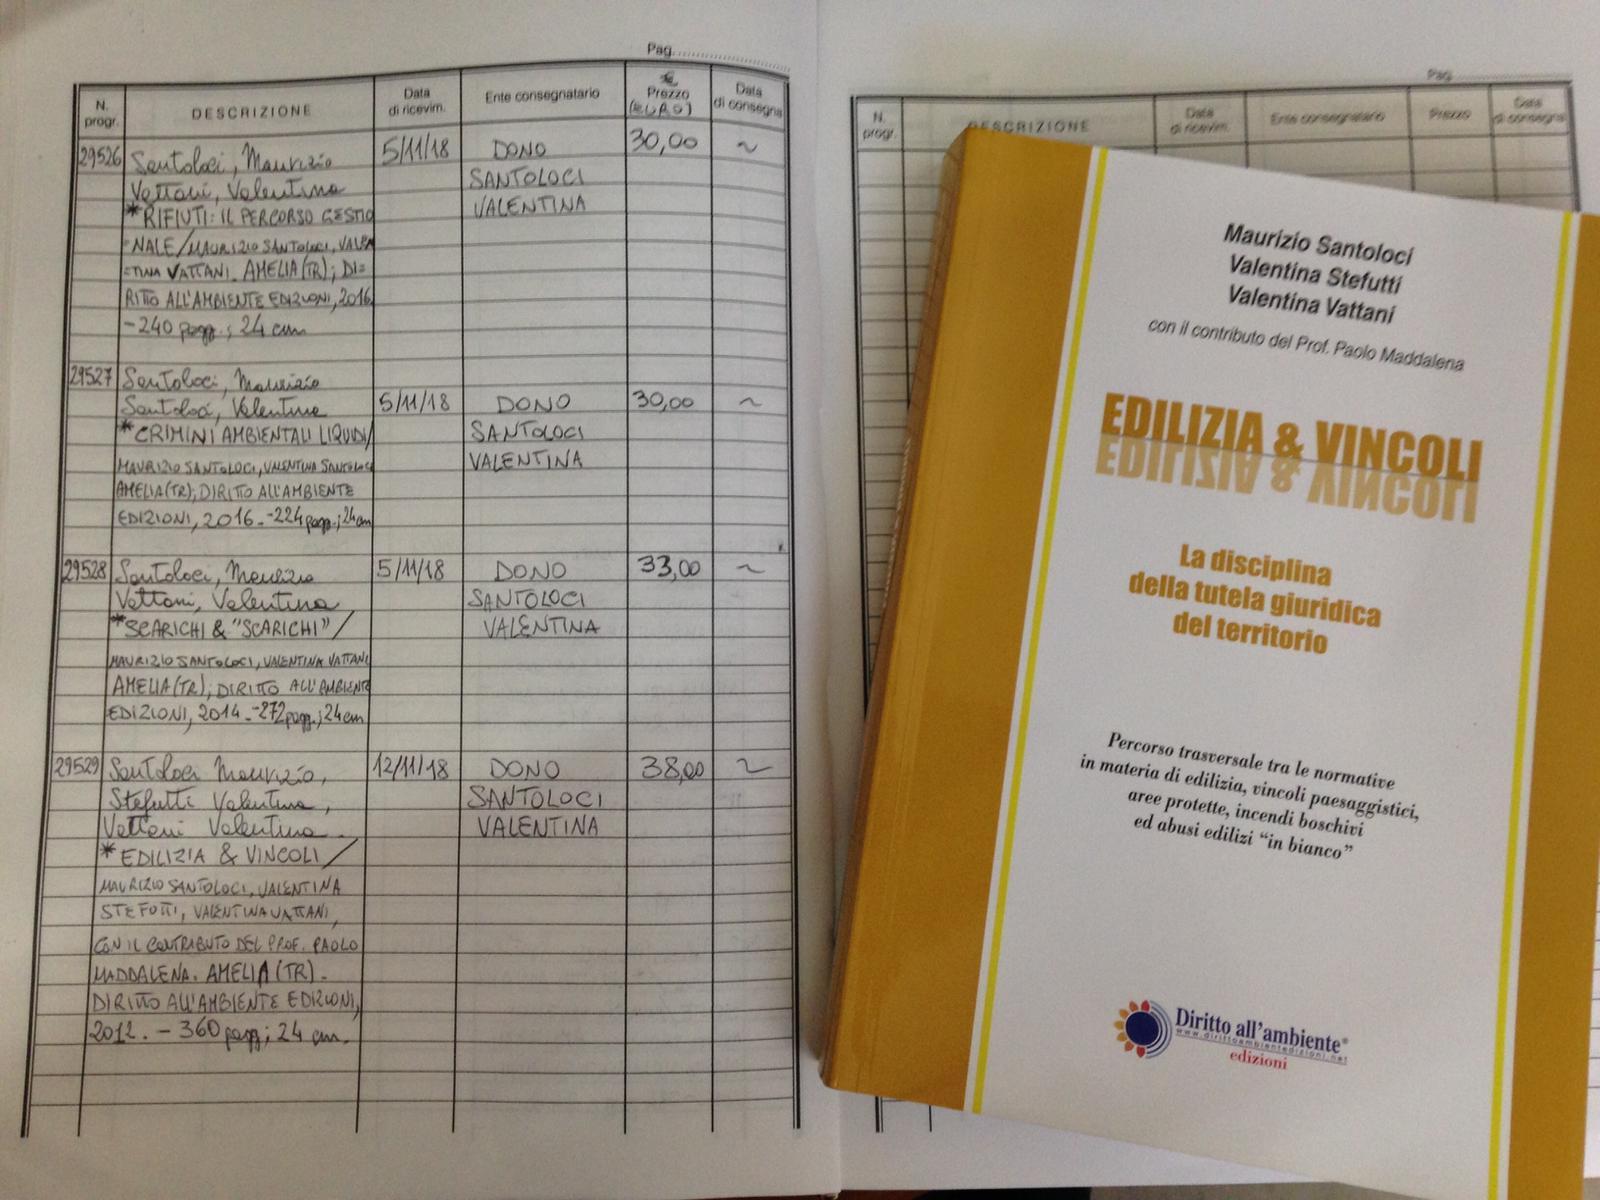 Pag.
N. progr. DESCRIZIONE Data di ricevim. Ente consegnatario € Prezzo (EURO) Data di consegna
29526 Santoloci, Maurizio 5/11/18 DONO 30,00 ~
Vattani, Valentina SANTOLOCI
*RIFIUTI: IL PERCORSO GESTIO VALENTINA
=NALE/MAURIZIO SANTOLOCI, VALEN
=TINA VATTANI. AMELIA (TR); DI=
RITTO ALL'AMBIENTE EDIZIONI, 2016
-240 pagg.; 24 cm
29527 Santoloci, Maurizio
Santoloci, Valentina 5/11/18 DONO 30,00 ~
*CRIMINI AMBIENTALI LIQUIDI/ SANTOLOCI
MAURIZIO SANTOLOCI, VALENTINA SANTOLOCI VALENTINA
AMELIA (TR); DIRITTO ALL'AMBIENTE
EDIZIONI, 2016.-224 pagg.; 24 cm
29528 Santoloci, Maurizio 5/11/18 DONO 33,00 ~
Vattani, Valentina SANTOLOCI
*SCARICHI & "SCARICHI"/ VALENTINA
MAURIZIO SANTOLOCI, VALENTINA VATTANI
AMELIA (TR); DIRITTO ALL'AMBIENTE
EDIZIONI, 2014.-272 pagg.; 24 cm
29529 Santoloci Maurizio, 12/11/18 DONO 38,00 ~
Stefutti Valentina, SANTOLOCI
Vattani Valentina. VALENTINA
*EDILIZIA & VINCOLI/
MAURIZIO SANTOLOCI, VALENTINA
STEFUTTI, VALENTINA VATTANI,
CON IL CONTRIBUTO DEL PROF. PAOLO
MADDALENA. AMELIA (TR).
DIRITTO ALL'AMBIENTE EDIZIONI,
2012. - 360 pagg; 24 cm.
Pag.
N. progr. DESCRIZIONE Data di ricevim. Ente consegnatario Prezzo Data di consegna
Maurizio Santoloci
Valentina Stefutti
Valentina Vattani
con il contributo del Prof. Paolo Maddalena
EDILIZIA & VINCOLI
EDILIZIA & VINCOLI
La disciplina
della tutela giuridica
del territorio
Percorso trasversale tra le normative
in materia di edilizia, vincoli paesaggistici,
aree protette, incendi boschivi
ed abusi edilizi "in bianco"
Diritto all'ambiente®
www.dirittoambientedizioni.net
edizioni